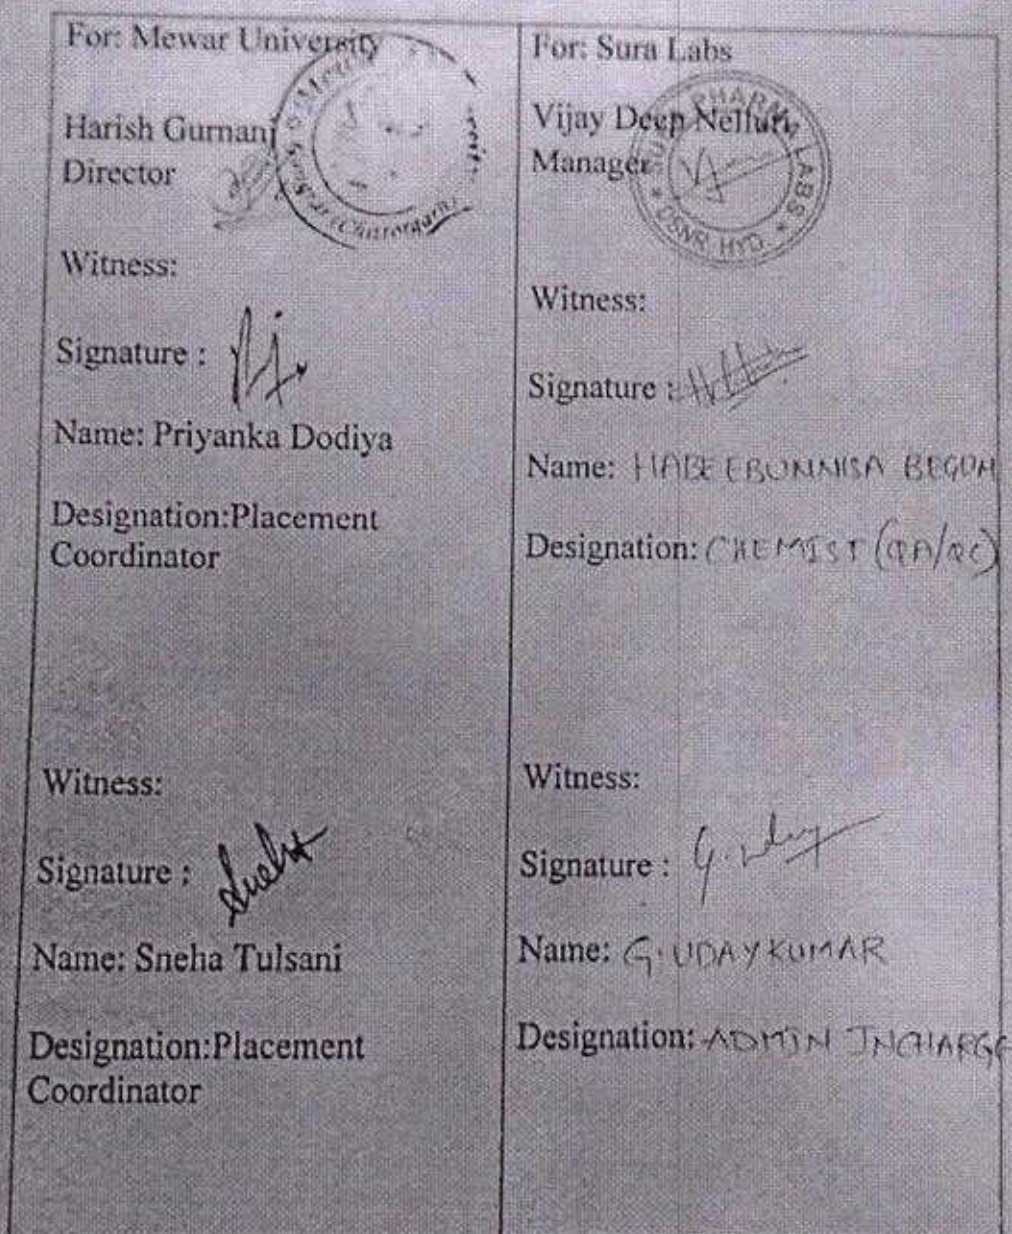 For: Mewar University
Harish Gurnani
Director
Witness:
Signature :
Name: Priyanka Dodiya
Designation:Placement
Coordinator
Witness:
Signature : Sneha
Name: Sneha Tulsani
Designation:Placement
Coordinator
For: Sura Labs
Vijay Deep Nelluri
Manager
SURA PHARMA LABS * DSNR HYD. *
Witness:
Signature :
Name: HABEEBUNNISA BEGUM
Designation: CHEMIST (QA/QC)
Witness:
Signature : G. Uday
Name: G. UDAY KUMAR
Designation: ADMIN INCHARGE